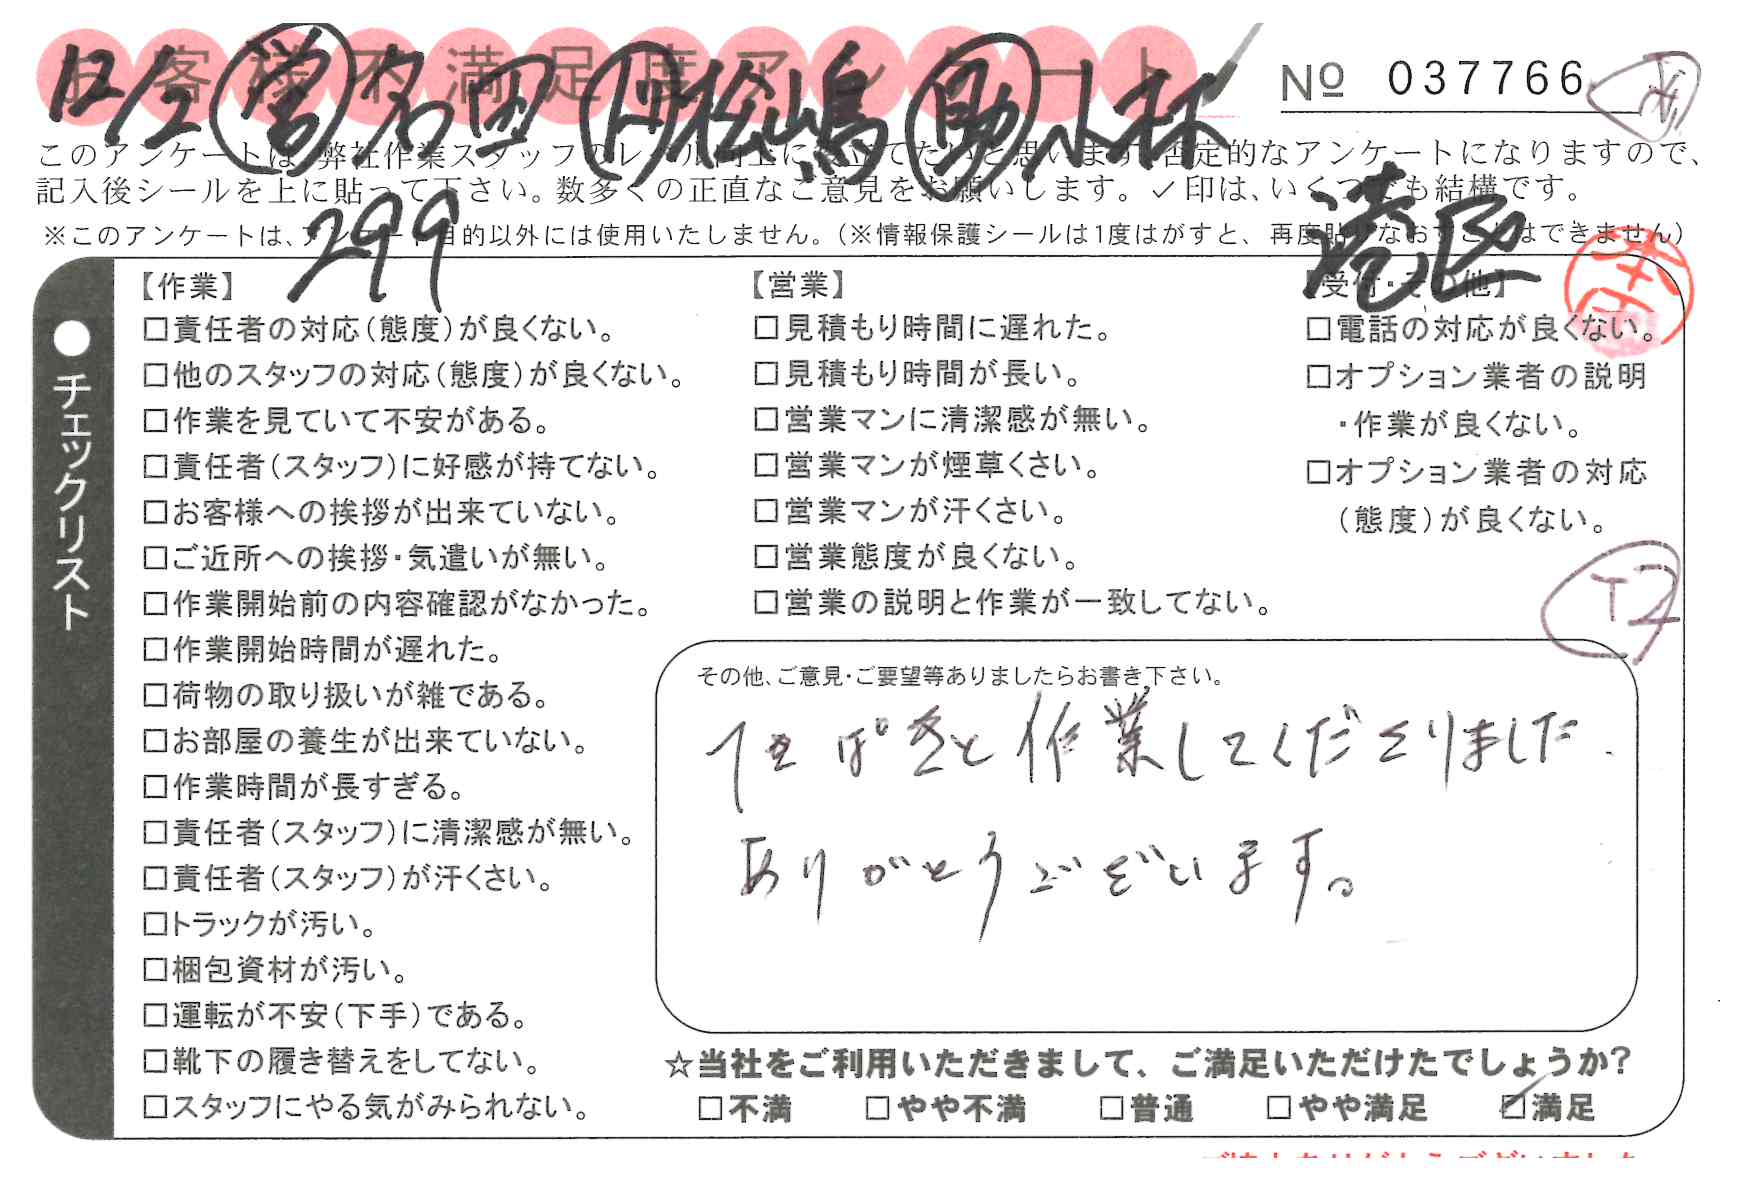 お客様不満足度アンケート
12/2 営 名田 作 松嶋 助 小林
No 037766
このアンケートは、弊社作業スタッフのレベル向上に役立てたいと思います。否定的なアンケートになりますので、
記入後シールを上に貼って下さい。数多くの正直なご意見をお願いします。✓印は、いくつでも結構です。
※このアンケートは、アンケート目的以外には使用いたしません。(※情報保護シールは1度はがすと、再度貼りなおすことはできません)
299
港区
●チェックリスト
【作業】
□責任者の対応(態度)が良くない。
□他のスタッフの対応(態度)が良くない。
□作業を見ていて不安がある。
□責任者(スタッフ)に好感が持てない。
□お客様への挨拶が出来ていない。
□ご近所への挨拶・気遣いが無い。
□作業開始前の内容確認がなかった。
□作業開始時間が遅れた。
□荷物の取り扱いが雑である。
□お部屋の養生が出来ていない。
□作業時間が長すぎる。
□責任者(スタッフ)に清潔感が無い。
□責任者(スタッフ)が汗くさい。
□トラックが汚い。
□梱包資材が汚い。
□運転が不安(下手)である。
□靴下の履き替えをしてない。
□スタッフにやる気がみられない。
【営業】
□見積もり時間に遅れた。
□見積もり時間が長い。
□営業マンに清潔感が無い。
□営業マンが煙草くさい。
□営業マンが汗くさい。
□営業態度が良くない。
□営業の説明と作業が一致してない。
【受付・その他】
□電話の対応が良くない。
□オプション業者の説明
・作業が良くない。
□オプション業者の対応
(態度)が良くない。
その他、ご意見・ご要望等ありましたらお書き下さい。
てきぱきと作業してくださりました.
ありがとうございます。
☆当社をご利用いただきまして、ご満足いただけたでしょうか?
□不満 □やや不満 □普通 □やや満足 ☑満足